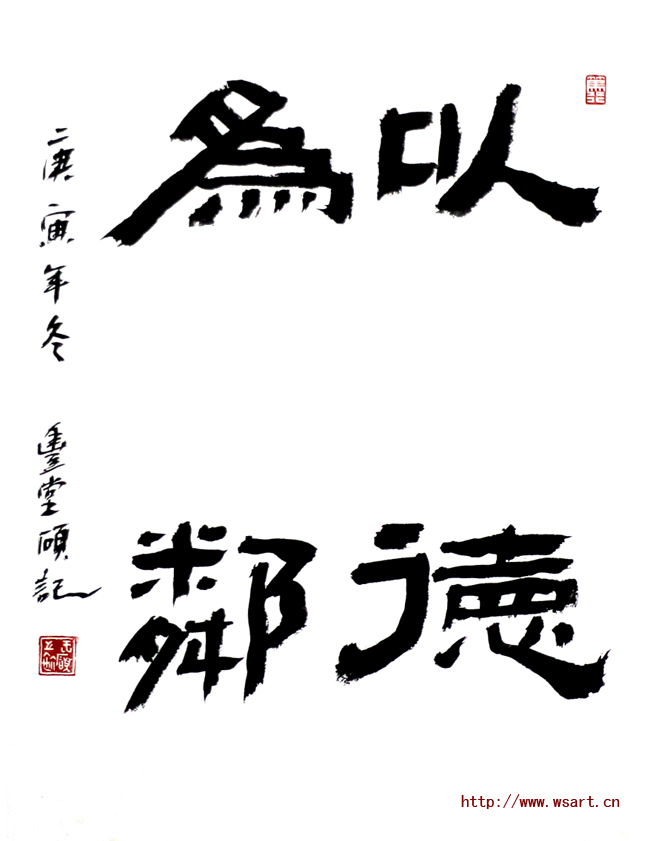 以德
為鄰
庚寅年冬 豐堂碩記
http://www.wsart.cn